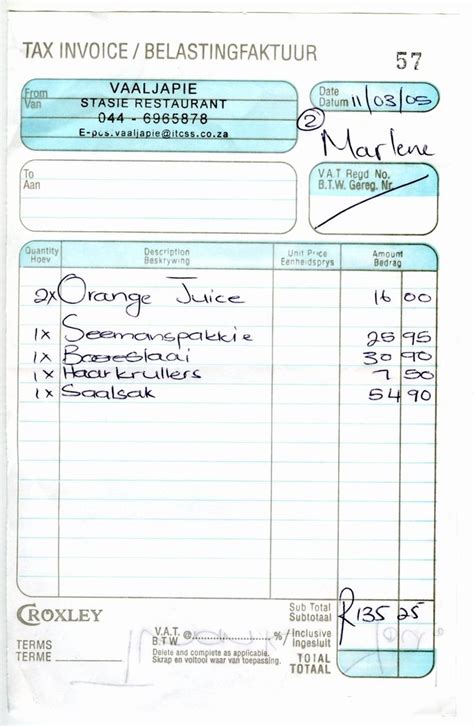 TAX INVOICE / BELASTINGFAKTUUR
57
From
Van
VAALJAPIE
STASIE RESTAURANT
044 - 6965878
E-pos.vaaljapie@itcss.co.za
Date
Datum 11/03/05
2
Marlene
To
Aan
V.A.T Regd No.
B.T.W. Gereg. Nr.
Quantity Description Unit Price Amount
Hoev Beskrywing Eenheidsprys Bedrag
2x Orange Juice 16 00
1x Seemanspakkie 25 95
1x 30 90
1x Haarkrullers 7 50
1x Saalsak 54 90
CROXLEY
TERMS
TERME
V.A.T. @ % Inclusive
B.T.W. Ingesluit
Delete and complete as applicable.
Skrap en voltooi waar van toepassing.
Sub Total
Subtotaal
R135 25
TOTAL
TOTAAL